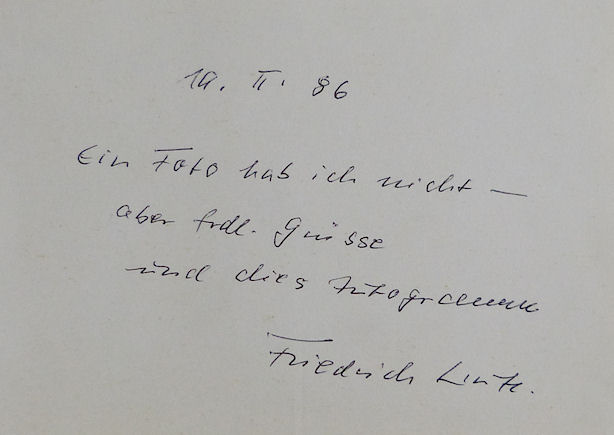 19. II. 86
Ein Foto hab ich nicht —
aber frdl. Grüsse
und dies Autogramm
Friedrich